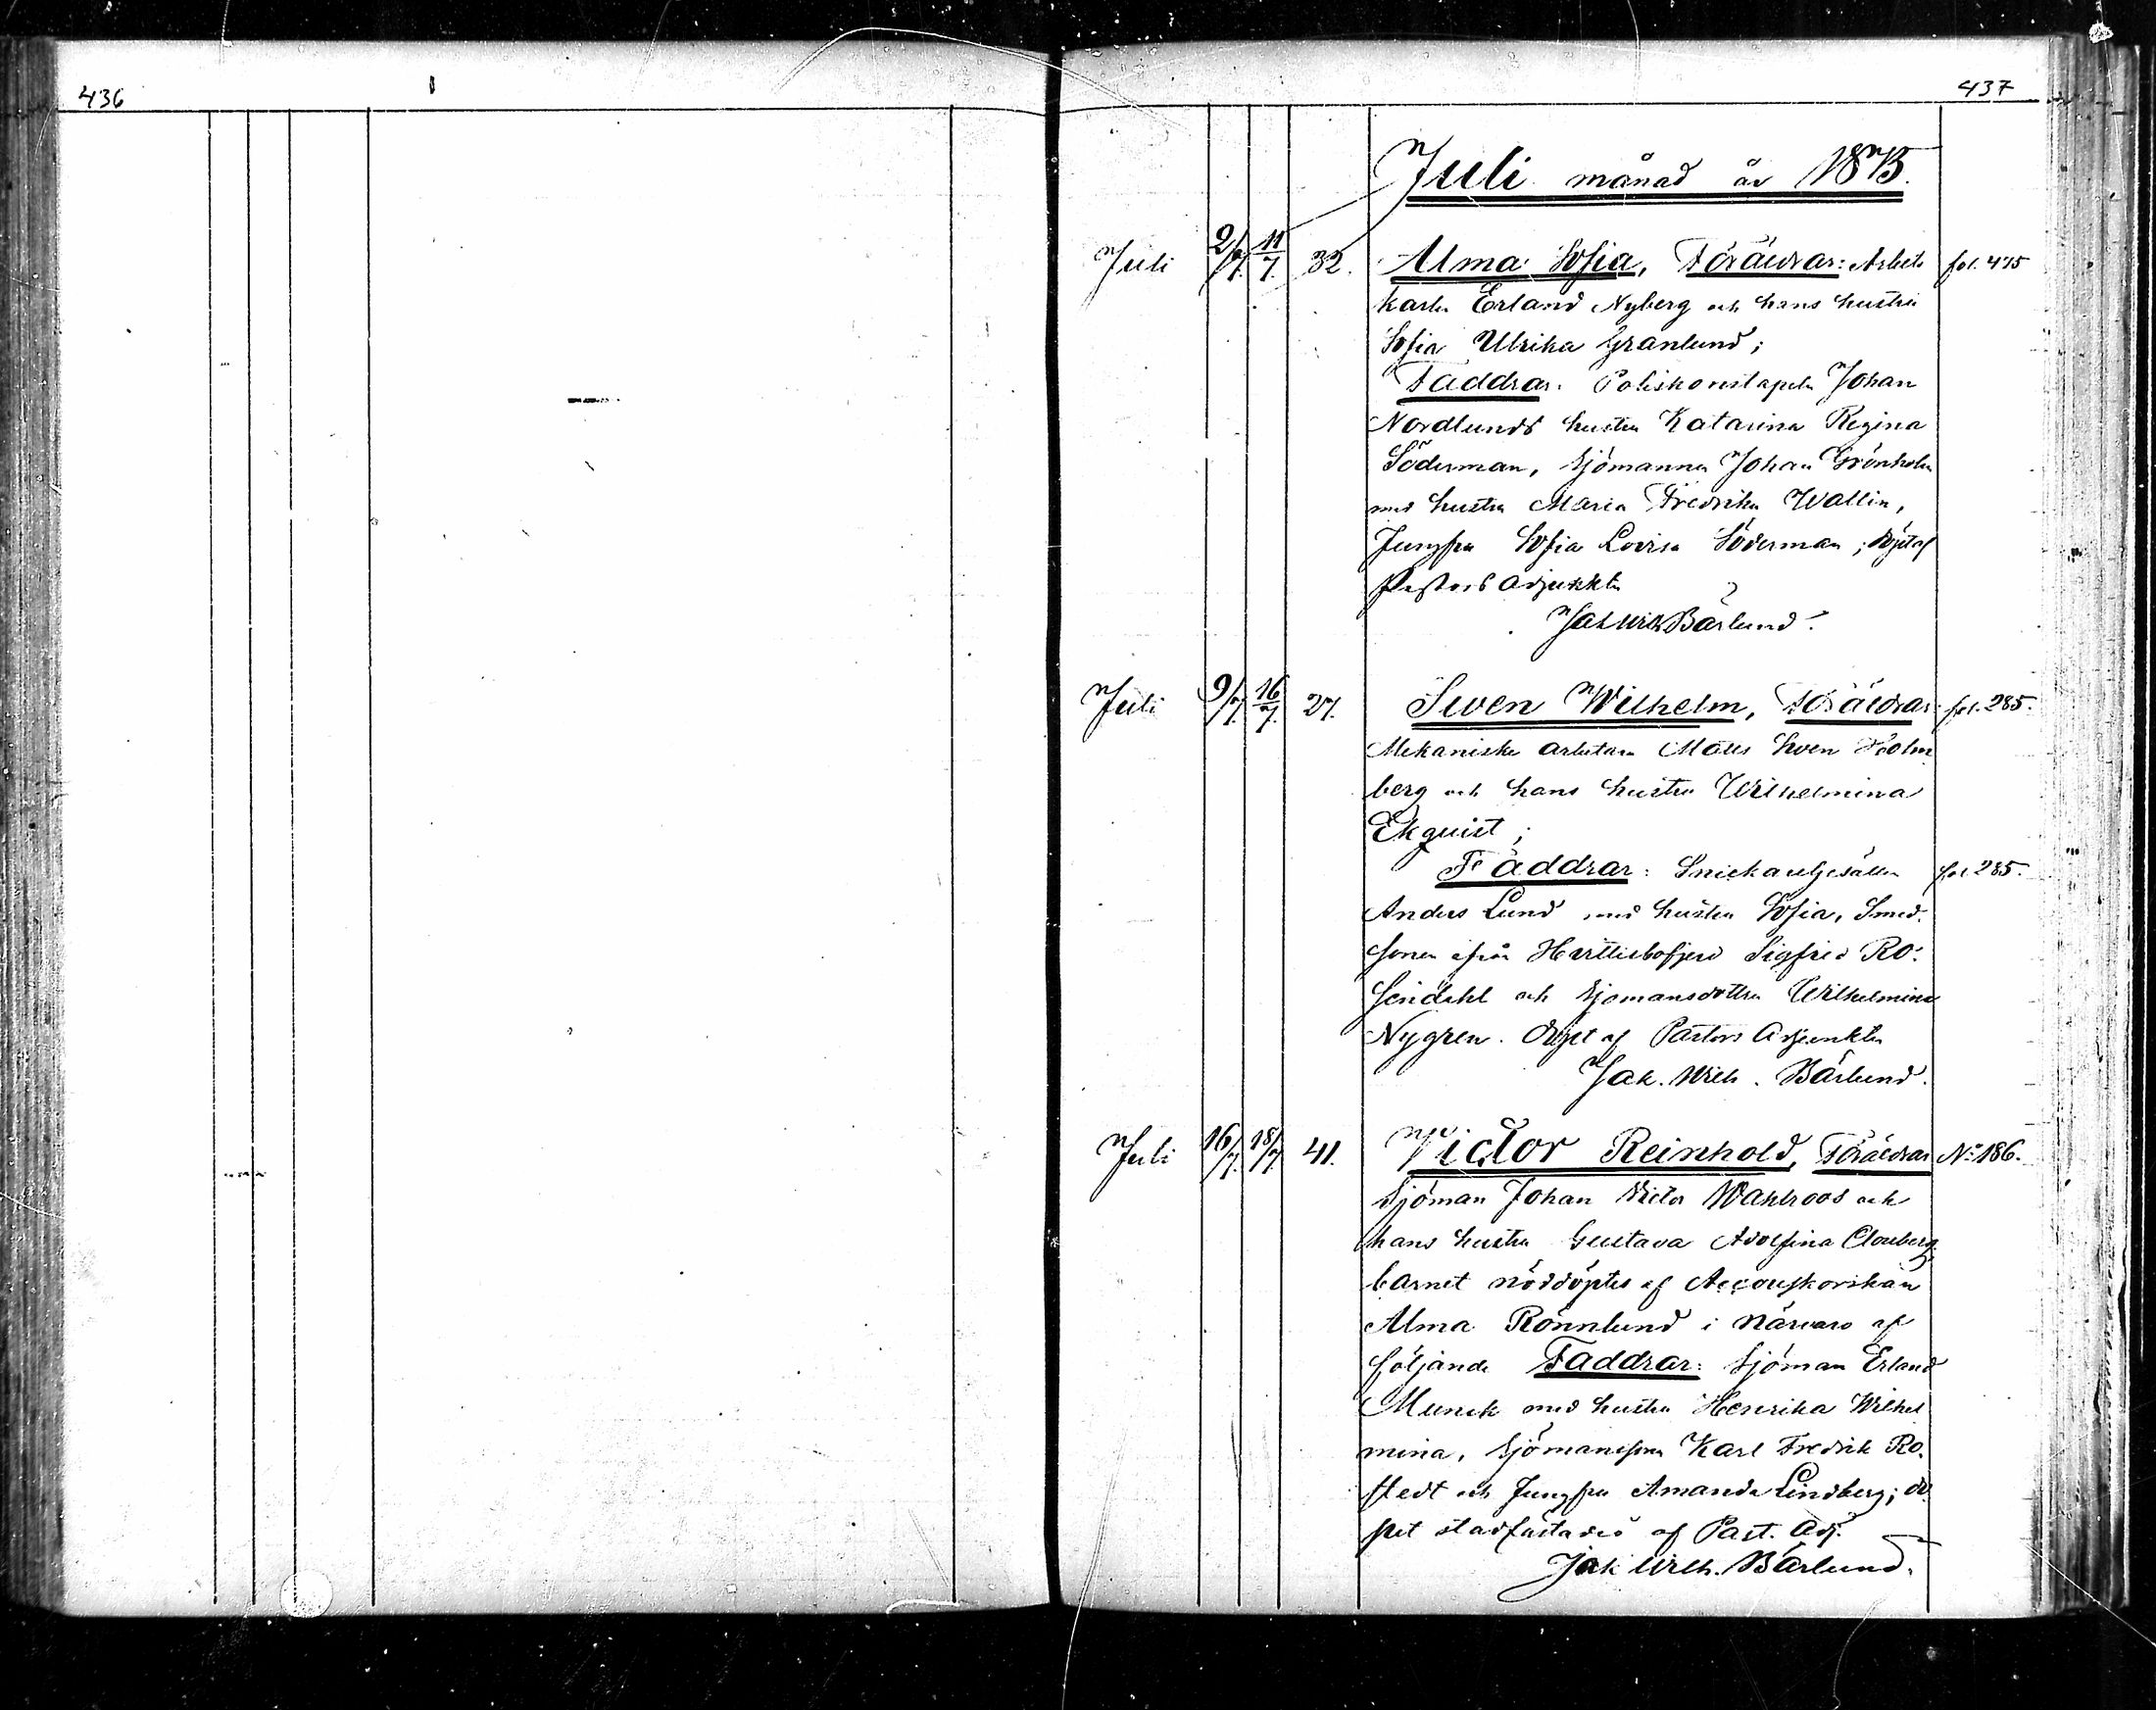 436
437
Juli månad år 1875.
Juli 2/7. 11/7. 32. Alma Sofia, Föräldrar: Arbets fol. 475
karln Erland Nyberg och hans hustru
Sofia Ulrika Granlund;
Faddrar: Poliskonstapeln Johan
Nordlunds hustru Katarina Regina
Söderman, Sjömannen Johan Grönholm
med hustru Maria Fredrika Wallin,
Jungfru Sofia Lovisa Söderman; döpt af
Pastors Adjunkten
Jak Wilh Bärlund.
Juli 9/7. 16/7. 27. Sven Wilhelm, Föräldrar: fol. 285.
Mekaniske arbetaren Matts Sven Holm
berg och hans hustru Wilhelmina
Ekquist;
Faddrar: Snickaregesällen fol. 285.
Anders Lund med hustru Sofia, Smed-
sonen ifrån Hvittisbofjerd Sigfrid Ro-
sendahl och Sjömansdottren Wilhelmina
Nygren. Döpt af Pastors Adjunkten
Jak. Wilh. Bärlund.
Juli 16/7. 18/7 41. Victor Reinhold, Föräldrar No 186.
Sjöman Johan Victor Wahlroos och
hans hustru Gustava Adolfina Clouberg
barnet nöddöptes af Accouchorskan
Alma Rönnlund i närvaro af
följande Faddrar: Sjöman Erland
Munck med hustru Henrika Wilhel
mina, Sjömansson Karl Fredrik Ro-
stedt och Jungfru Amanda Lindberg; do
pet stadfästades af Past. Adj.
Jak Wilh. Bärlund.